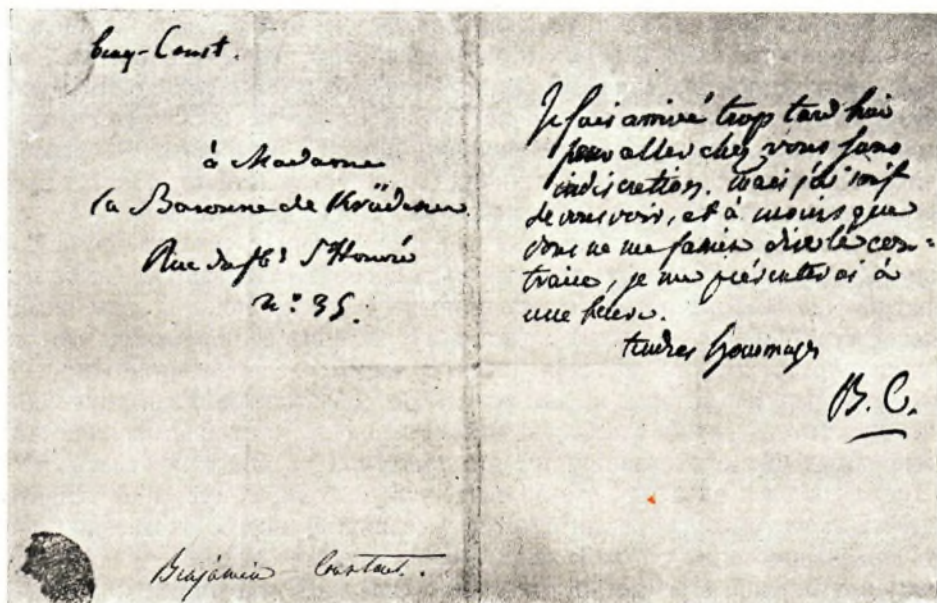 Benj-Const.
à Madame
la Baronne de Krüdener
Rue du fbg St Honoré
n.º 35.
Benjamin Constant.
Je suis arrivé trop tard hier
pour aller chez vous sans
indiscretion. mais j'ai soif
de vous voir, et à moins que
vous ne me fassiez dire le con-
traire, je me présenterai à
une heure.
tendres hommages
B. C.